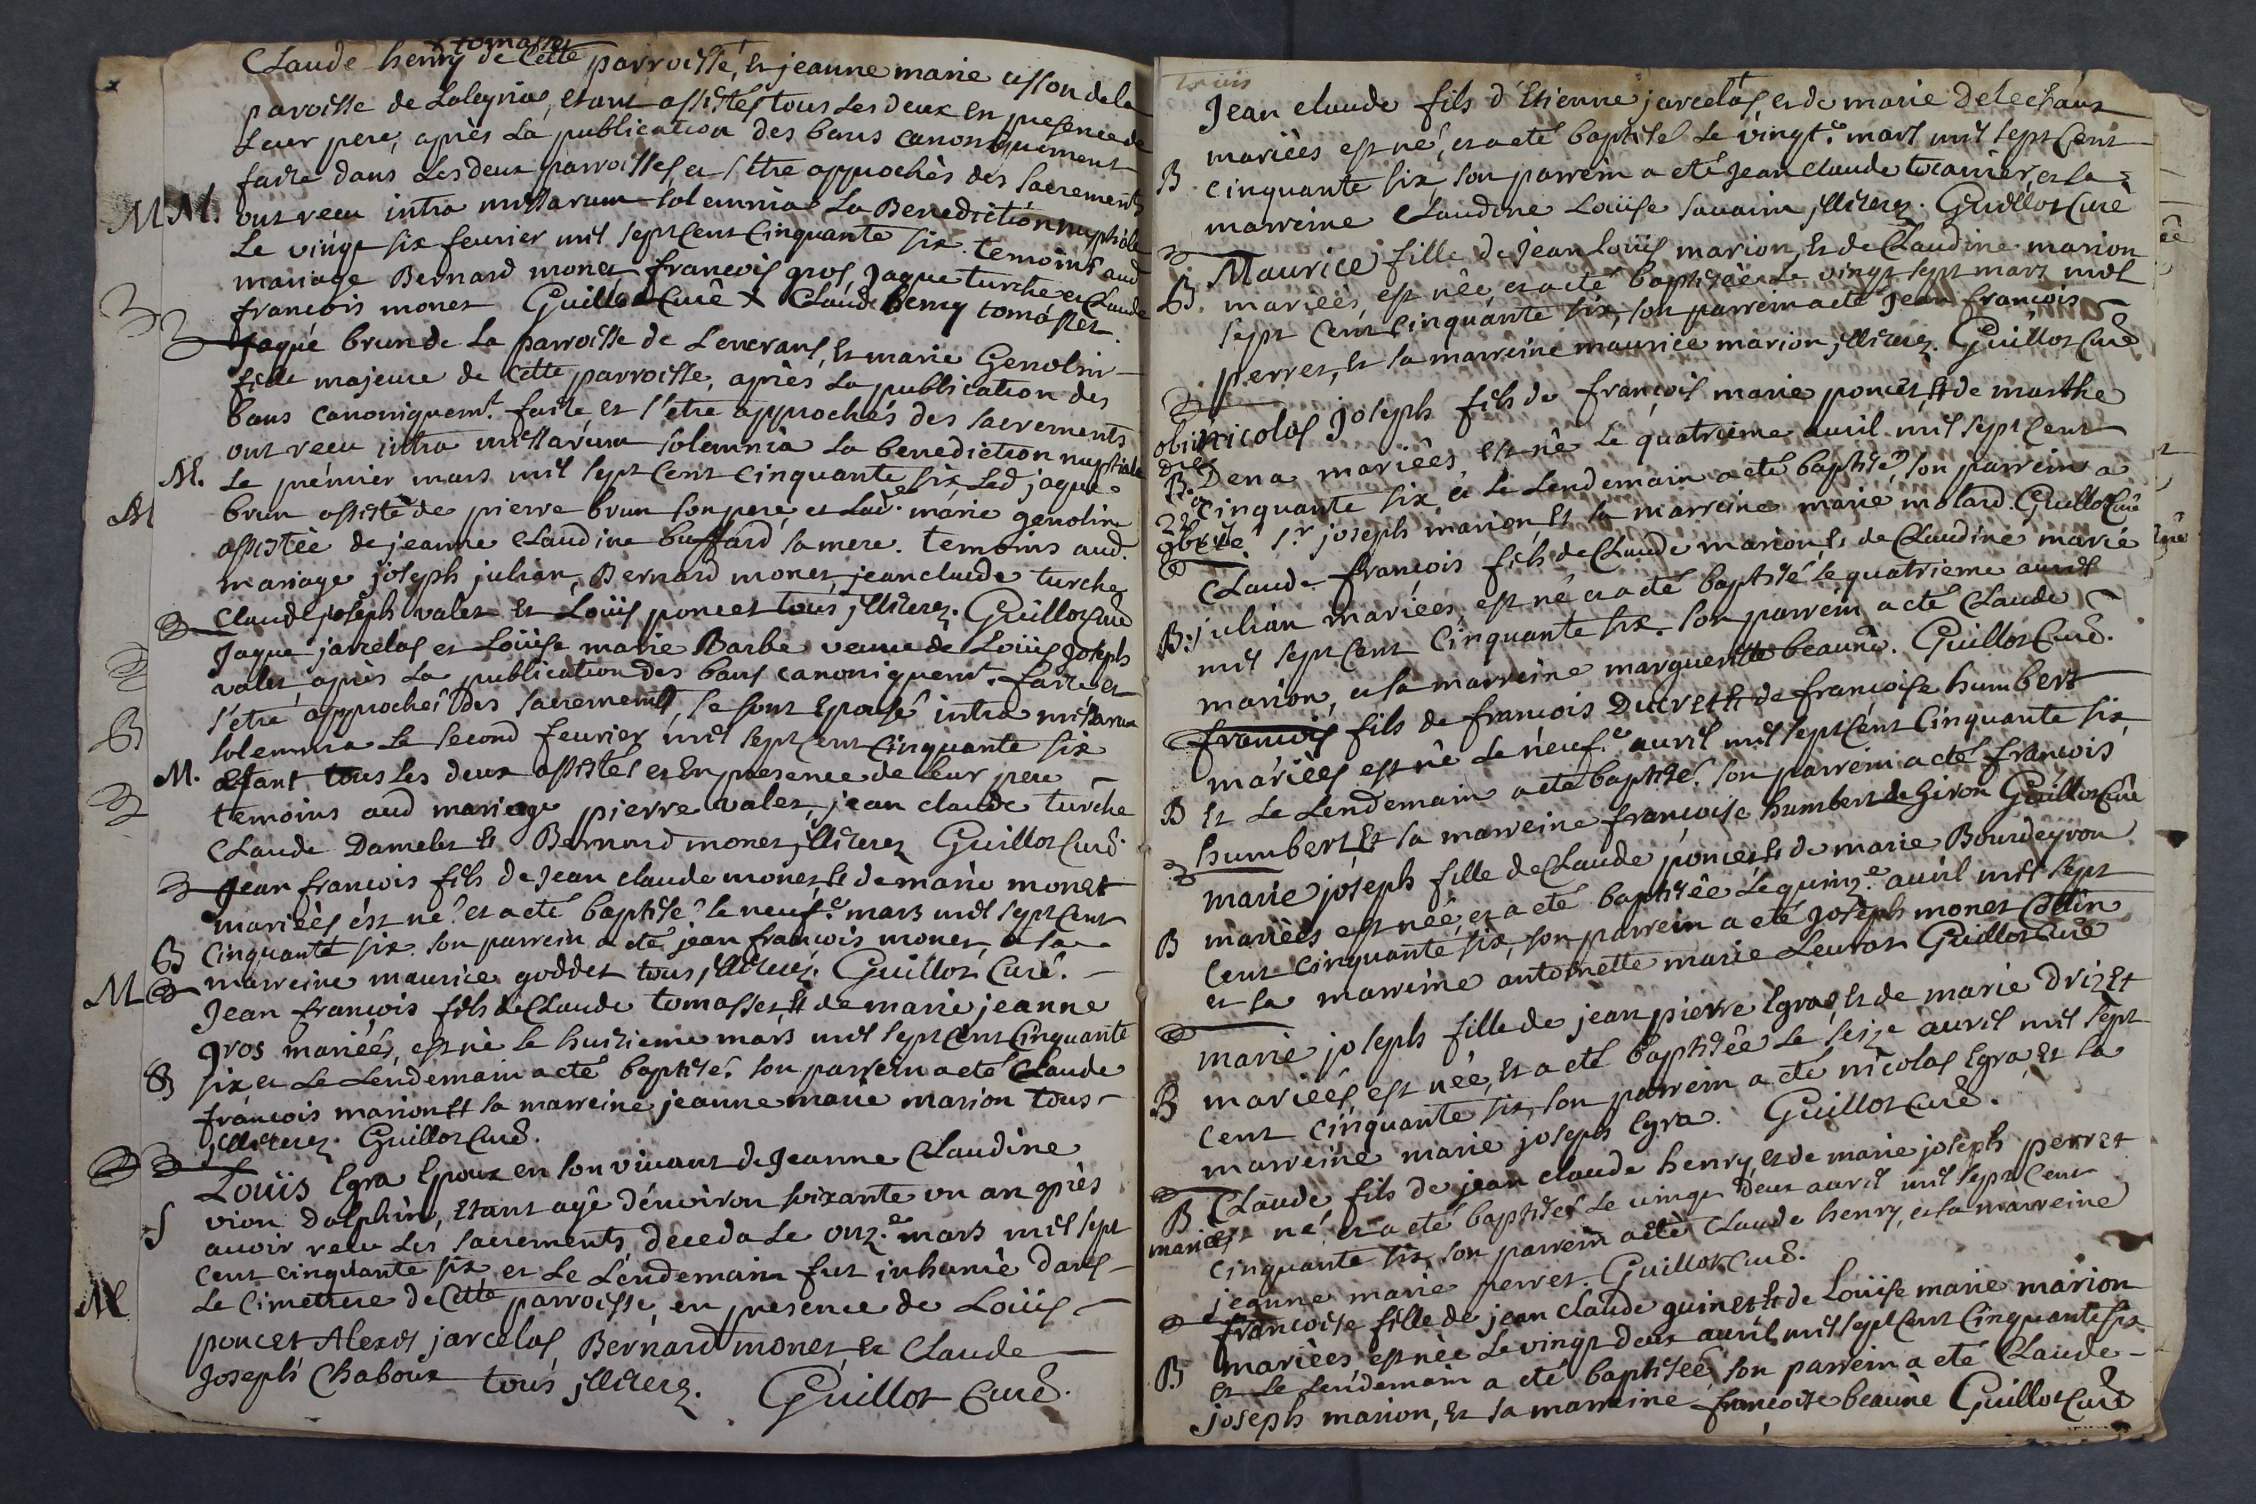 x tomasset
Claude henry de Cette parroisse, et jeanne marie asson de la
paroisse de Laleyriat, etant assistés tous les deux en presence de
Leur pere, après La publication des bans canoniquement
faite dans les deux parroisses et s'etre approchès des sacrements
MM. ont recu intra missarum solemnia La Benediction nuptiale
Le vingt six feurier mil sept Cent Cinquante six. temoins aud
mariage Bernard monet francois gros Jaque turche et Claude
francois monet Guillot Curé X Claude henry tomasset.
Jaque brun de La parroisse de Lencrans, et marie Genolin
fille majeure de Cette parroisse, après La publication des
bans canoniquemt. faite et s'etre approchés des sacrements
ont recu intra missarum solemnia La benediction nuptiale
M. Le prémier mars mil sept Cent Cinquante six, Led jaque
brun assistè de pierre brun son pere, et Lade. marie genolin
assistée de jeanne Claudine buffard sa mere. temoins aud.
mariage joseph julian, Bernard monet, jean claude turche
Claude joseph valet et Loüis poncet tous jllitérez. Guillot Curé
Jaque jarcelas et Loüise marie Barbe veuve de Loüis Joseph
valet, après La publication des bans canoniquemt. faite et
s'etre approchés des sacrements, se sont Epousé intra missarum
solemnia Le second feurier mil sept Cent Cinquante six
M. etant tous les deux assistés et En presence de leur pere
temoins aud mariage pierre valet, jean claude turche
Claude Damelet et Bernard monet jllitérez Guillot Curé.
Jean francois fils de Jean claude monet et de marie monet
mariées est né et a eté baptisé le neufe. mars mil sept Cent
B Cinquante six. son parrein a eté jean francois monet, et sa
marreine maurice goddet tous jllitérez. Guillot Curé.
Jean francois fils de Claude tomasset et de marie jeanne
Gros mariéés, est né le huitieme mars mil sept Cent Cinquante
B six et Le Lendemain a eté baptisé. son parrein a eté Claude
francois marion et sa marreine jeanne marie marion tous
jllitérez. Guillot Curé.
Loüis Egra Epoux en son vivant de Jeanne Claudine
S vion dalphin, etant agé d'environ soixante un an après
avoir recu Les sacrements, deceda Le onze. mars mil sept
Cent cinquante six et Le Lendemain fut inhumé dans
Le Cimettiere de Cette parroisse, en presence de Loüis
poncet Alexis jarcelas Bernard monet, et Claude
Joseph Chaboux tous jllitérez. Guillot Curé.
trois
Jean claude fils d'Etienne jarcelas et de marie Delechaux
mariéés est né, et a eté baptisé Le vingte. mars mil sept Cent
B. Cinquante six son parrein a eté Jean Claude tocanier, et sa
marreine Claudine Loüise savarin jllitérez. Guillot Curé
Maurice fille de Jean Loüis marion et de Claudine marion
B. mariéés est née et a eté baptisée Le vingt sept mars mil
sept Cent Cinquante six, son parrein a eté Jean francois
perret, et sa marreine maurice marion jllitérez. Guillot Curé
nicolas Joseph fils de françois marie poncet et de marthe
Dena mariéés, est né Le quatrieme auril mil sept Cent
B. Cinquante six et Le Lendemain a eté baptisé, son parrein a
eté Sr. joseph marion, et sa marreine marie molard. Guillot Curé
Claude francois fils de Claude marion et de Claudine marie
B. julian mariéés, est né et a eté baptisé le quatrieme auril
mil sept Cent Cinquante six. son parrein a eté Claude
marion, et sa marreine marguerite beaune. Guillot Curé.
francois fils de francois Ducret et de francoise humbert
mariéés est né Le neufe. auril mil sept Cent Cinquante six
B et Le Lendemain a eté baptisé. son parrein a eté francois
humbert, et sa marreine françoise humbert de Giron Guillot Curé
marie joseph fille de Claude poncet et de marie Bourdeyron
B mariéés est née, et a eté baptisée Le quinze. auril mil sept
Cent Cinquante six, son parrein a eté Joseph monet Collin
et sa marreine antoinette marie Levrat Guillot Curé
marie joseph fille de jean pierre Egraz, et de marie Drizet
B mariéés est née, et a eté baptisée Le seize auril mil sept
Cent Cinquante six, son parrein a eté nicolas Egra, et sa
marreine marie joseph Egra. Guillot Curé.
B Claude, fils de jean claude henry, et de marie joseph perret
mariéés né, et a eté baptisé Le vingt deux auril mil sept Cent
Cinquante six, son parrein a eté Claude henry, et sa marreine
jeanne marie perret. Guillot Curé.
francoise fille de jean claude guinet et de Loüise marie marion
B mariéés est née Le vingt deux auril mil sept Cent Cinquante six
et Le Lendemain a eté baptisée, son parrein a eté Claude
joseph marion, et sa marreine francoise beaune Guillot Curé